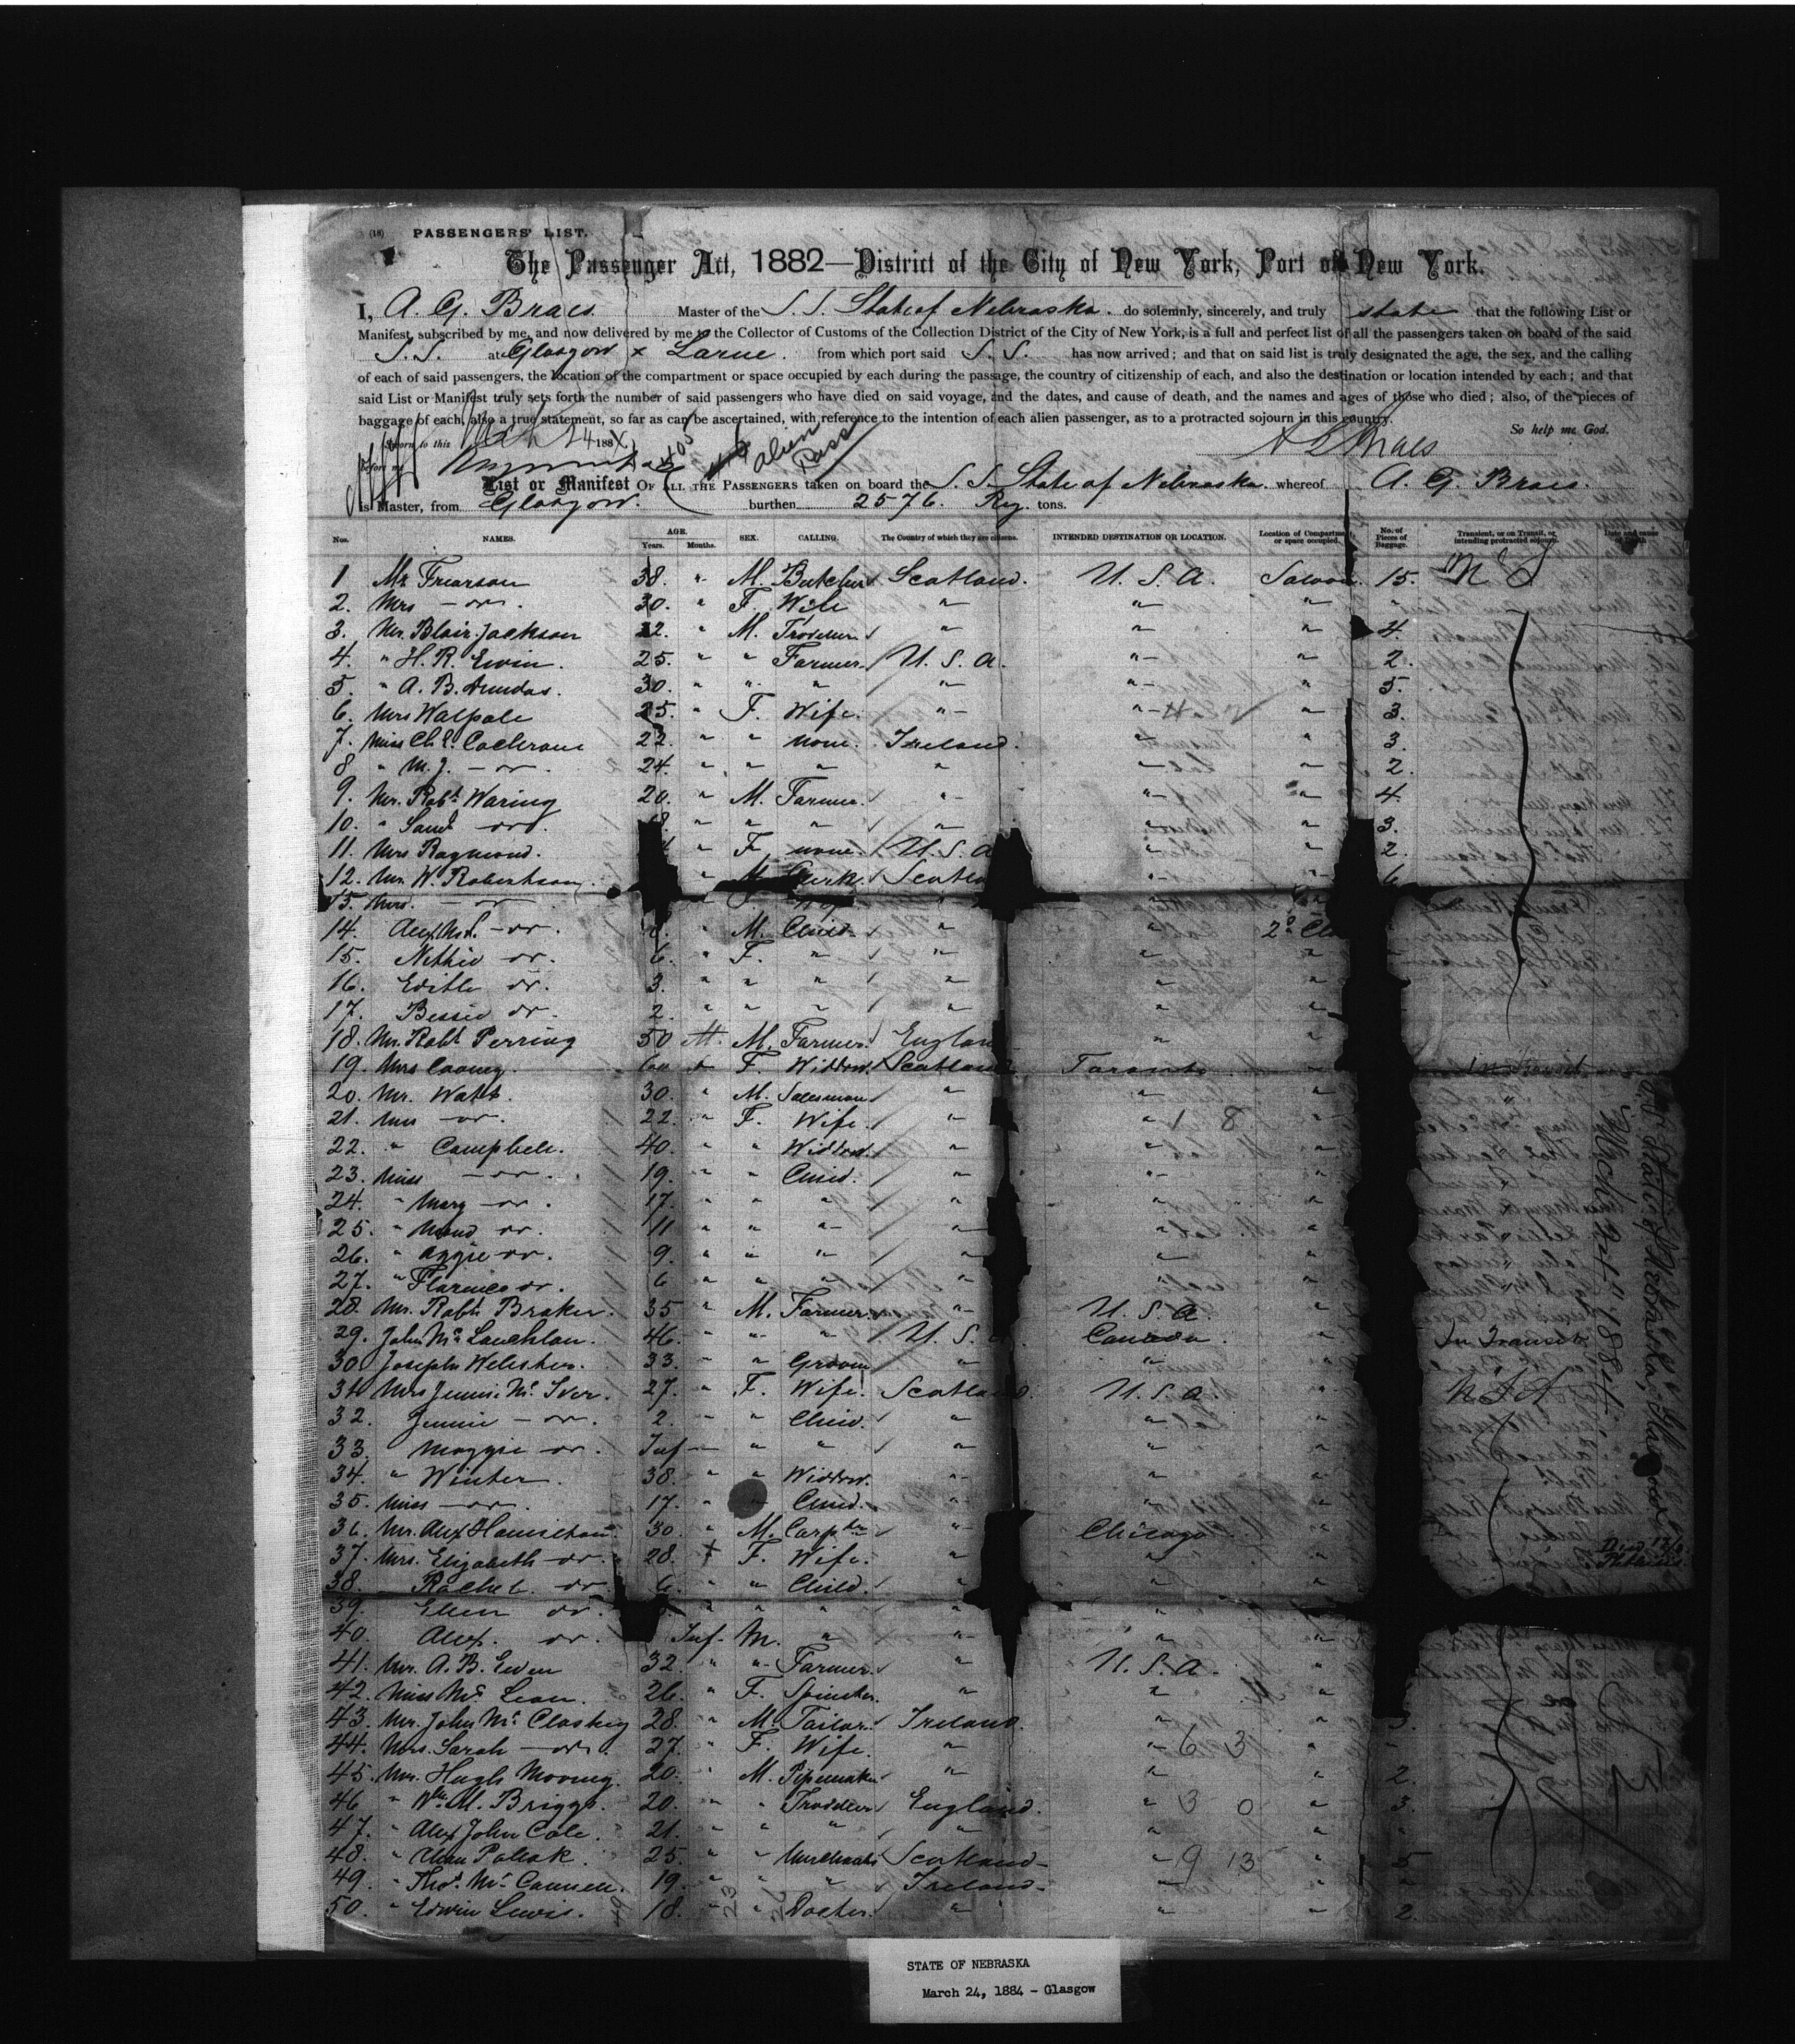 (18) PASSENGERS' LIST.
The Passenger Act, 1882—District of the City of New York, Port of New York.
I, A. G. Braes. Master of the S. S. State of Nebraska. do solemnly, sincerely, and truly state that the following List or
Manifest, subscribed by me, and now delivered by me to the Collector of Customs of the Collection District of the City of New York, is a full and perfect list of all the passengers taken on board of the said
S. S. at Glasgow & Larne. from which port said S. S. has now arrived; and that on said list is truly designated the age, the sex, and the calling
of each of said passengers, the location of the compartment or space occupied by each during the passage, the country of citizenship of each, and also the destination or location intended by each; and that
said List or Manifest truly sets forth the number of said passengers who have died on said voyage, and the dates, and cause of death, and the names and ages of those who died; also, of the pieces of
baggage of each, also a true statement, so far as can be ascertained, with reference to the intention of each alien passenger, as to a protracted sojourn in this country.
So help me God.
Sworn to this Mch 24 188
before me
405 alien Pass
A G Braes
List or Manifest OF ALL THE PASSENGERS taken on board the S. S. State of Nebraska. whereof A. G. Braes.
is Master, from Glasgow. burthen 2576. Reg. tons.
Nos. NAMES. AGE. Years. Months. SEX. CALLING. The Country of which they are citizens. INTENDED DESTINATION OR LOCATION. Location of Compartment or space occupied. No. of Pieces of Baggage. Transient, or on Transit, or intending protracted sojourn. Date and cause of Death
1 Mr Frearson 38. " M. Butcher Scotland. U. S. A. Saloon. 15.
2. Mrs - do - . 30. " F. Wife " " "
3. Mr. Blair Jackson 22. " M. " " " 4.
4. " H. R. Ewin. 25. " " Farmer U. S. A. " " 2.
5. " A. B. Dundas. 30. " " " " " " 5.
6. Mrs Walpole 25. " F. Wife. " " " 3.
7. Miss Cochrane 22. " " none. Ireland. " " 3.
8 " M. J. - do - . 24. " " " " " " 2.
9. Mr. Robt Waring 20. " M. Farmer. " " " 4.
10. " Saml - do - . 18. " " " " " " 3.
11. Mrs Raymond. " F. none. U. S. A " " 2.
12. Mr. W. Robertson. " M. Clerk. Scotla " " 6
13. Mrs. - do -
14. - do - . " M. Child " " 2d Cla
15. Nethie do - . 6. " F. " " "
16. Edith do. 3. " " " " "
17. Bessie do - 2. " " " " "
18. Mr. Robt Perring 50 M. Farmer. Englan " "
19. Mrs Cooney. 60 F. Widow. Scotland. Toronto In Transit
20. Mr. Watt. 30. " M. Salesman " " " "
21. Mrs - do - . 22. " F. Wife. " " 1 8 "
22. " Campbell. 40. " " Widow. " " "
23. Miss - do - . 19. " " Child. " " "
24. " Mary - do - . 17. " " " " " "
25. " Maud do. 11 " " " " " "
26. " Aggie do. 9. " " " " " "
27. " Florence do. 6 " " " " " "
28. Mr. Robt. Braker. 35 " M. Farmer " U. S. A. "
29. John McLauchlan. 46. " " " U. S. Canada. " In Transit
30. Joseph Webster. 33. " " Groom " " "
31. Mrs Jennie McIver. 27. " F. Wife. Scotland. U. S. A. "
32. Jennie - do - . 2. " " Child. " " "
33. Maggie do. Inf " " " " "
34. " Winter. 38. " " Widow. " " "
35. Miss - do - . 17. " " Child. " " "
36. Mr. Alex Hamilton 30. " M. Carptr " Chicago "
37. Mrs. Elizabeth do. 28. F. Wife. " " "
38. Rachel. do 6. " " Child. " " " Died 12/3
39. Ellen do. " " " " " "
40. Alex. do. Inf. M. " " " "
41. Mr. A. B. Ewen 32. " " Farmer. " U. S. A. "
42. Miss McLean. 26. " F. Spinster. " " "
43. Mr. John McCloskey 28. " M. Tailor Ireland. " " 3.
44. Mrs. Sarah - do - . 27. " F. Wife. " " 6 3 " -
45. Mr. Hugh Mooney. 20. " M. Pipemaker " " " 2.
46 " Wm. M. Briggs. 20. " " England. " 3 0 " 3.
47. " Alex John Cole. 21. " " " " " " "
48. " Pollak. 25. " " Merchant Scotland " 9 13 " 5
49. " Thos. McCannell. 19. " " " Ireland. " " "
50. " Edwin Lewis. 18. " " Doctor. " " " 2.
49 23 26
State of Nebraska, Glasgow
Mch 24" 1884
STATE OF NEBRASKA
March 24, 1884 - Glasgow